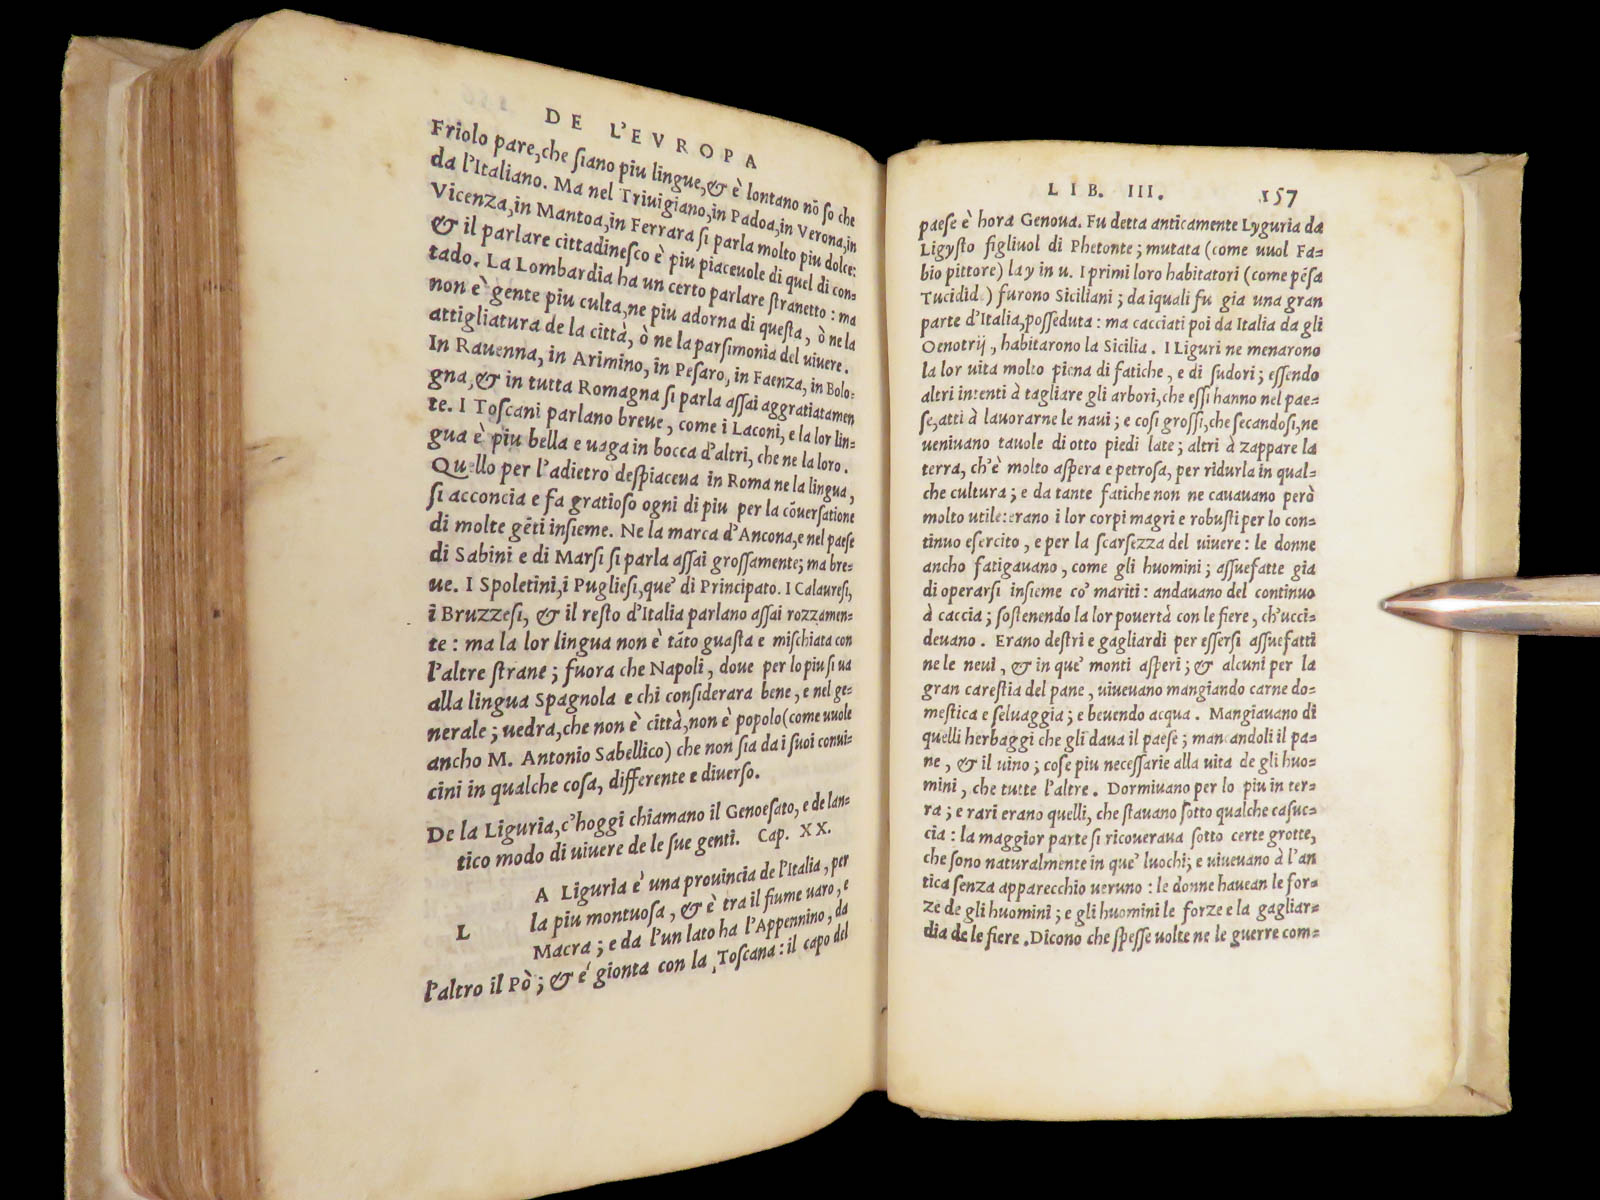 DE L'EVROPA
Friolo pare, che ſiano piu lingue, & è lontano nō ſo che
da l'Italiano. Ma nel Triuigiano, in Padoa, in Verona, in
Vicenza, in Mantoa, in Ferrara ſi parla molto piu dolce:
& il parlare cittadineſco è piu piaceuole di quel di con=
tado. La Lombardia ha un certo parlare ſtranetto: ma
non è gente piu culta, ne piu adorna di queſta, ò ne la
attigliatura de la città, ò ne la parſimonia del uiuere.
In Rauenna, in Arimino, in Peſaro, in Faenza, in Bolo=
gna, & in tutta Romagna ſi parla aſſai aggratiatamen
te. I Toſcani parlano breue, come i Laconi, e la lor lin=
gua è piu bella e uaga in bocca d'altri, che ne la loro.
Quello per l'adietro deſpiaceua in Roma ne la lingua,
ſi acconcia e fa gratioſo ogni di piu per la cōuerſatione
di molte gēti inſieme. Ne la marca d'Ancona, e nel paeſe
di Sabini e di Marſi ſi parla aſſai groſſamente; ma bre=
ue. I Spoletini, i Puglieſi, que' di Principato. I Calaureſi,
i Bruzzeſi, & il reſto d'Italia parlano aſſai rozzamen=
te: ma la lor lingua non è tāto guaſta e miſchiata con
l'altre ſtrane; fuora che Napoli, doue per lo piu ſi ua
alla lingua Spagnola e chi conſiderara bene, e nel ge=
nerale; uedra, che non è città, non è popolo (come uuole
ancho M. Antonio Sabellico) che non ſia da i ſuoi conui=
cini in qualche coſa, differente e diuerſo.
De la Liguria, c'hoggi chiamano il Genoeſato, e de l'an=
tico modo di uiuere de le ſue genti. Cap. XX.
L A Liguria è una prouincia de l'Italia, per
la piu montuoſa, & è tra il fiume uaro, e
Macra; e da l'un lato ha l'Appennino, da
l'altro il Pò; & e' gionta con la Toſcana: il capo del
LIB. III. 157
paeſe è hora Genoua. Fu detta anticamente Lyguria da
Ligyſto figliuol di Phetonte; mutata (come uuol Fa=
bio pittore) la y in u. I primi loro habitatori (come pēſa
Tucidid.) furono Siciliani; da iquali fu gia una gran
parte d'Italia, poſſeduta: ma cacciati poi da Italia da gli
Oenotrij, habitarono la Sicilia. I Liguri ne menarono
la lor uita molto piena di fatiche, e di ſudori; eſſendo
altri intenti à tagliare gli arbori, che eſſi hanno nel pae=
ſe, atti à lauorarne le naui; e coſi groſſi, che ſecandoſi, ne
ueniuano tauole di otto piedi late; altri à zappare la
terra, ch'è molto aſpera e petroſa, per ridurla in qual=
che cultura; e da tante fatiche non ne cauauano però
molto utile: erano i lor corpi magri e robuſti per lo con=
tinuo eſercito, e per la ſcarſezza del uiuere: le donne
ancho fatigauano, come gli huomini; aſſuefatte gia
di operarſi inſieme co' mariti: andauano del continuo
à caccia; ſoſtenendo la lor pouertà con le fiere, ch'ucci=
deuano. Erano deſtri e gagliardi per eſſerſi aſſuefatti
ne le neui, & in que' monti aſperi; & alcuni per la
gran careſtia del pane, uiueuano mangiando carne do=
meſtica e ſeluaggia; e beuendo acqua. Mangiauano di
quelli herbaggi che gli daua il paeſe; mancandoli il pa=
ne, & il uino; coſe piu neceſſarie alla uita de gli huo=
mini, che tutte l'altre. Dormiuano per lo piu in ter=
ra; e rari erano quelli, che ſtauano ſotto qualche caſuc=
cia: la maggior parte ſi ricoueraua ſotto certe grotte,
che ſono naturalmente in que' luochi; e uiueuano à l'an
tica ſenza apparecchio ueruno: le donne hauean le for=
ze de gli huomini; e gli huomini le forze e la gagliar=
dia de le fiere. Dicono che ſpeſſe uolte ne le guerre com=